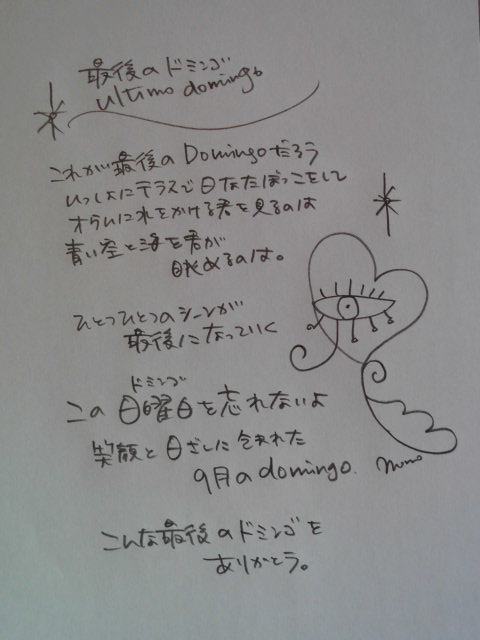 最後のドミンゴ
ultimo domingo
これが最後のDomingoだろう
いっしょにテラスで日なたぼっこをして
オリーブに水をかける君を見るのは
青い空と海を君が
眺めるのは。
ひとつひとつのシーンが
最後になっていく
ドミンゴ
この日曜日を忘れないよ
笑顔と日ざしに包まれた
9月のdomingo.
momo
こんな最後のドミンゴを
ありがとう。